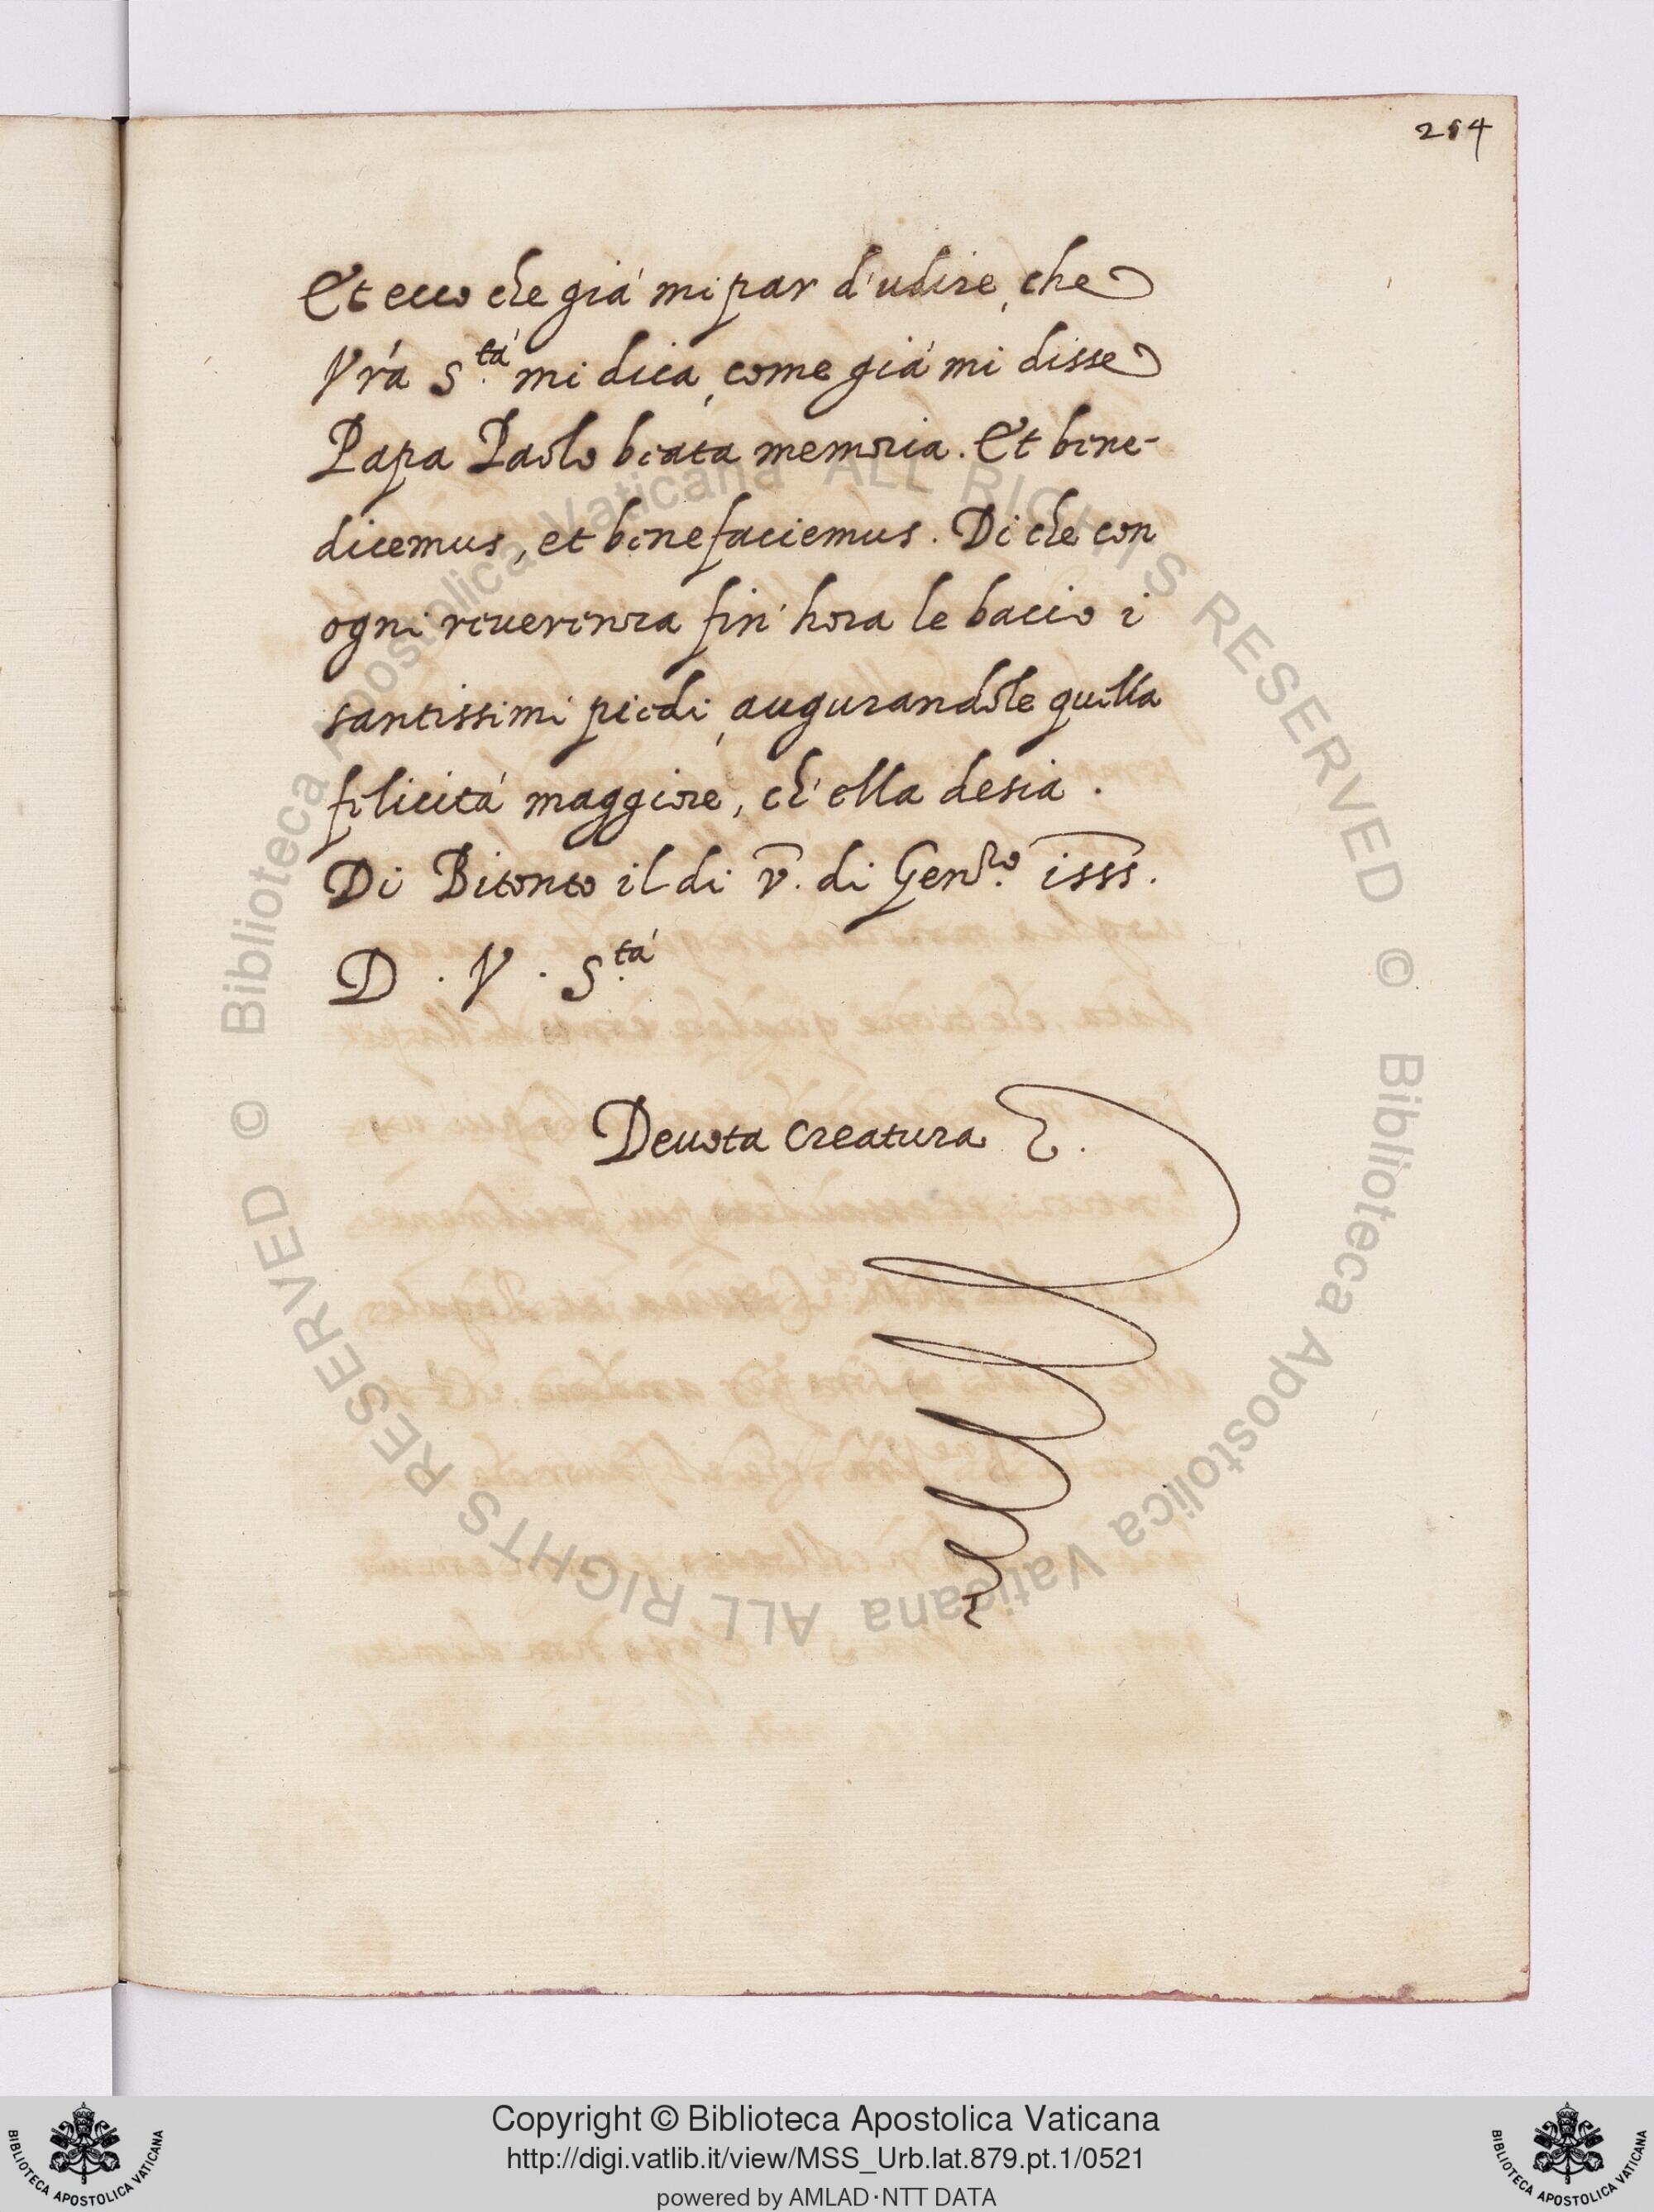 254
Et ecco che già mi par d'udire, che
Vrá S.tá mi dica, come già mi disse
Papa Paolo beata memoria. Et bene-
dicemus, et benefaciemus. Di che con
ogni reverenza fin' hora le bacio i
santissimi piedi, augurandole quella
felicità maggiore, ch'ella desia.
Di Bitonto il di v. di Gen.ro 1555.
D. V. S.tá
Deuota creatura
© Biblioteca Apostolica Vaticana ALL RIGHTS RESERVED
© Biblioteca Apostolica Vaticana ALL RIGHTS RESERVED
Copyright © Biblioteca Apostolica Vaticana
http://digi.vatlib.it/view/MSS_Urb.lat.879.pt.1/0521
powered by AMLAD·NTT DATA
BIBLIOTECA APOSTOLICA VATICANA
BIBLIOTECA APOSTOLICA VATICANA